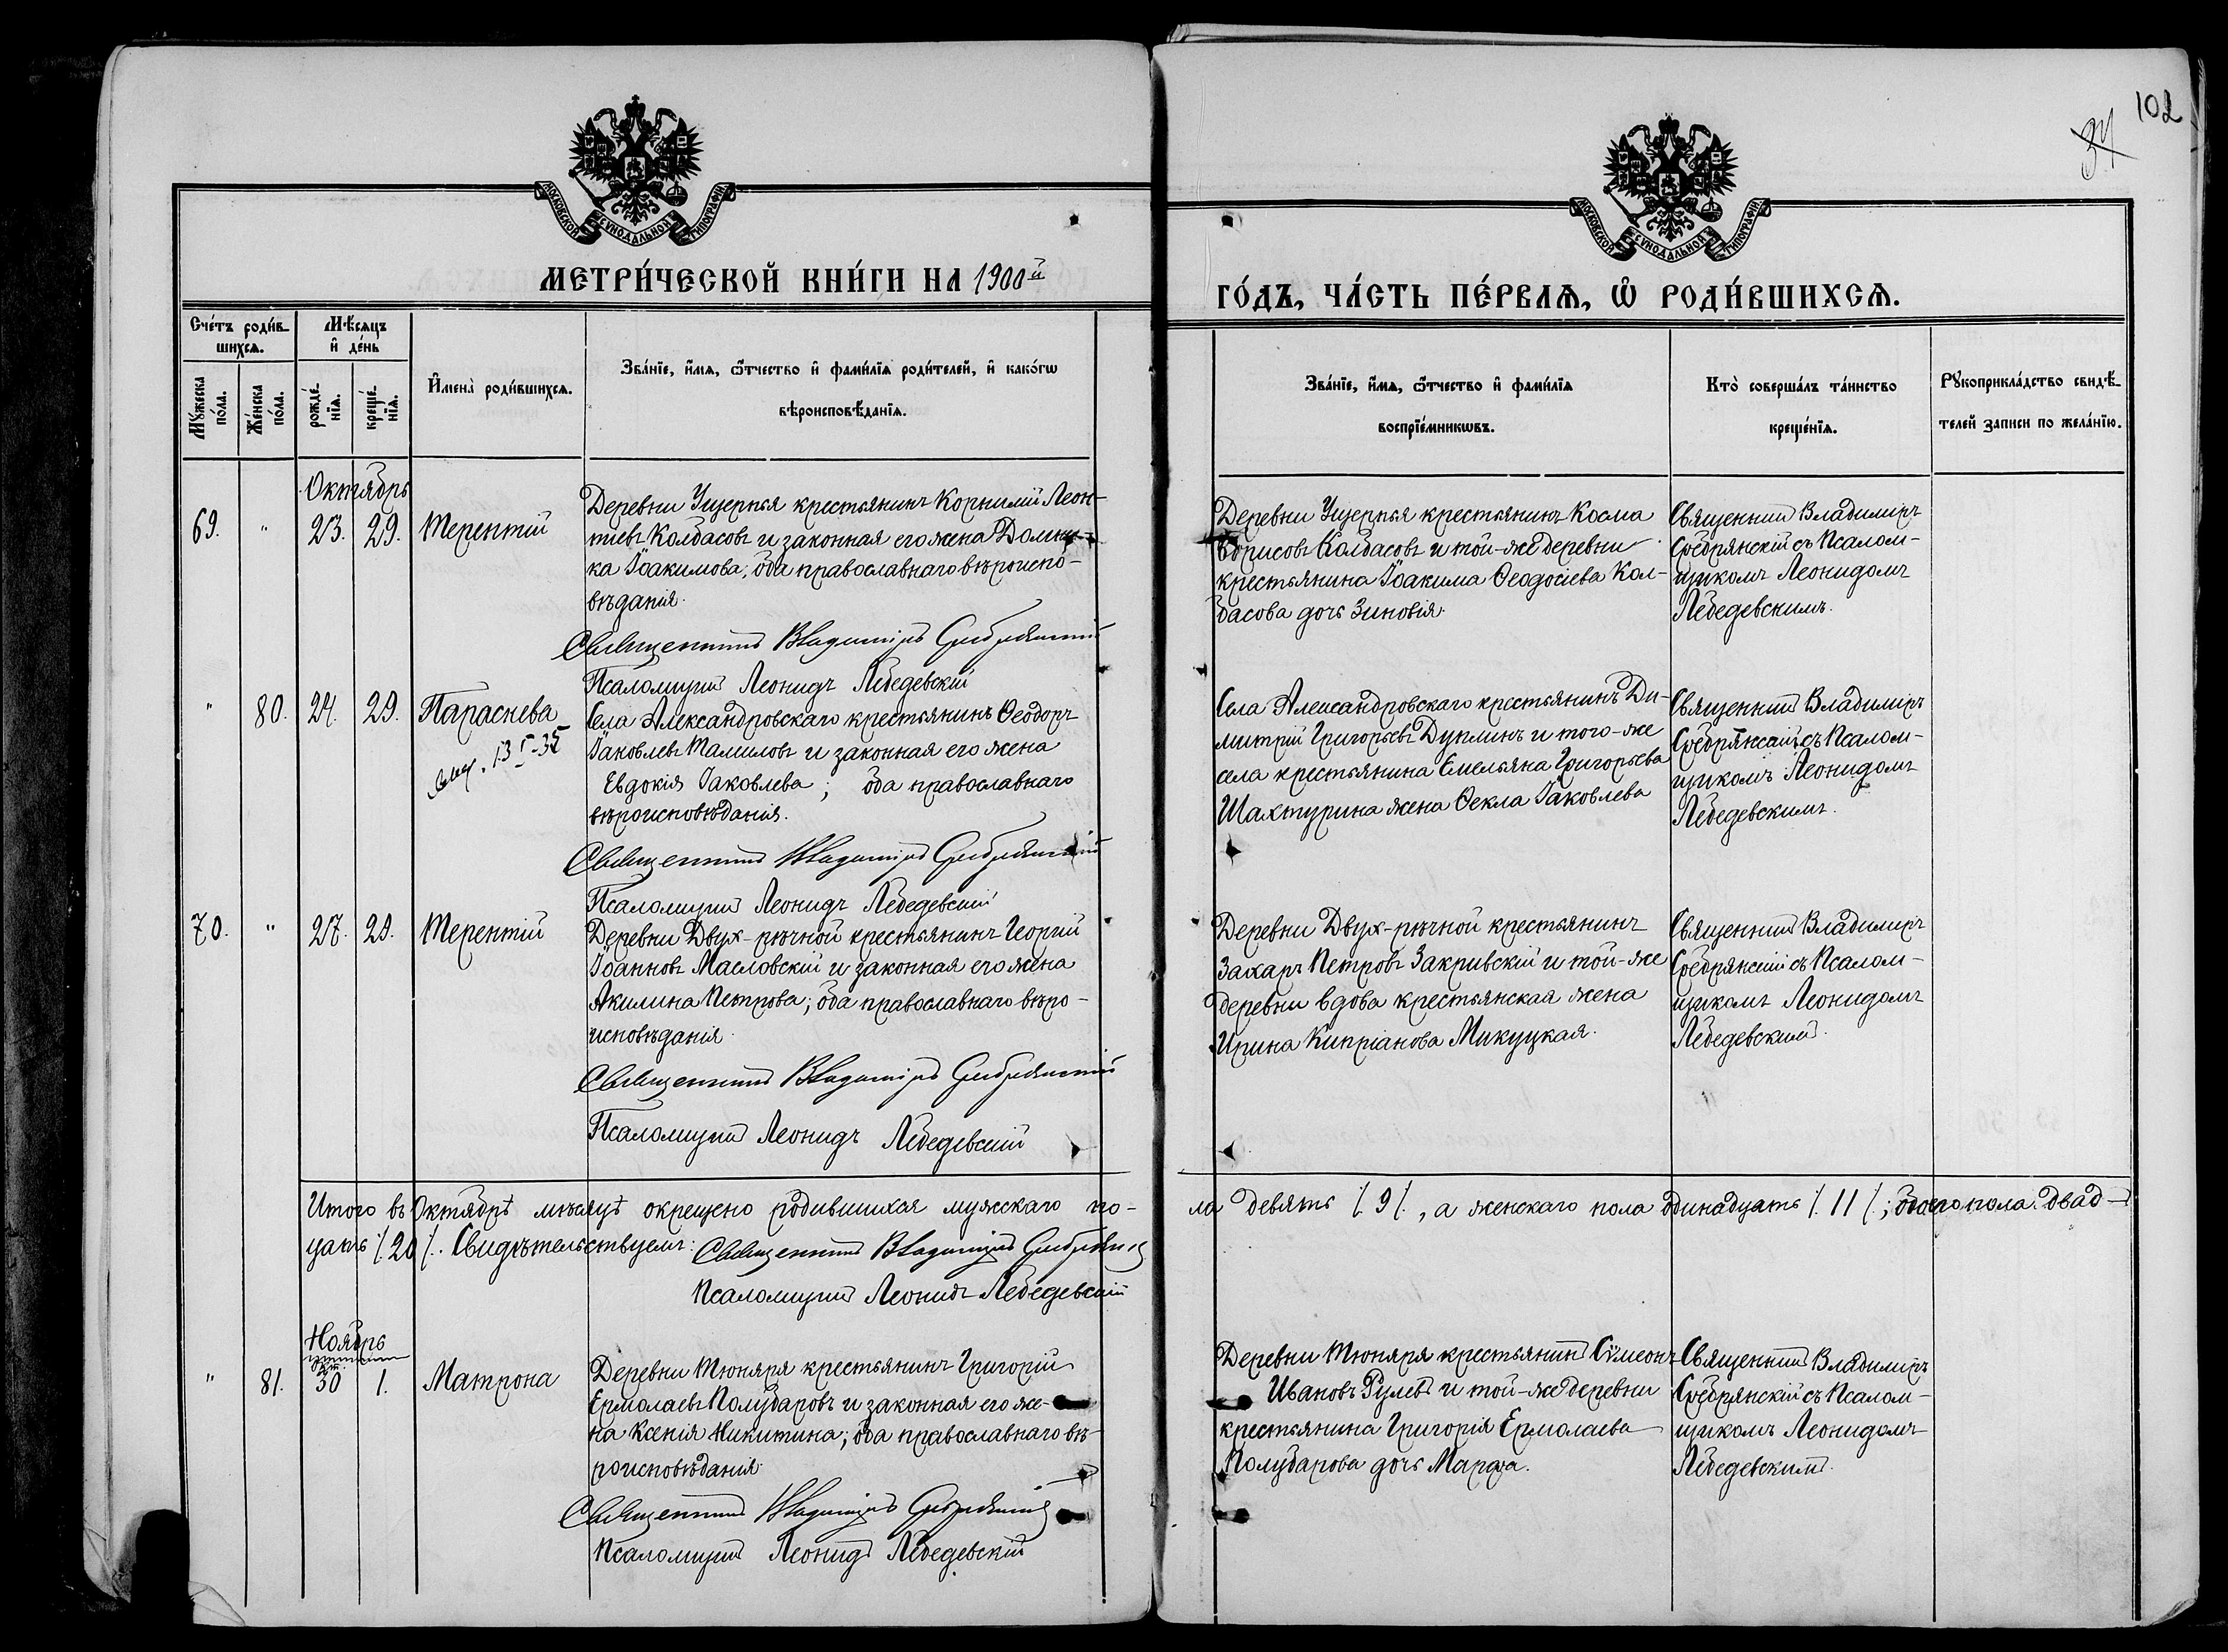 102
МОСКОВСКОЙ СѴНОДАЛЬНОЙ ТИПОГРАФІИ
МЕТРИ́ЧЕСКОЙ КНИ́ГИ НА 1900й
МОСКОВСКОЙ СѴНОДАЛЬНОЙ ТИПОГРАФІИ
ГО́ДЪ, ЧА́СТЬ ПЕ́РВАѦ, Ѡ РОДИ́ВШИХСѦ.
Сче́тъ роди́в-
шихсѧ.
Мꙋ́жеска
по́ла.
Же́нска
по́ла.
Мѣ́сѧцъ
и҆ де́нь
рожде́-
нїѧ.
креще́-
нїѧ.
И҆мена̀ роди́вшихсѧ.
Зва́нїе, и҆́мѧ, ѻ҆́тчество и҆ фами́лїѧ роди́телей, и҆ како́гѡ
вѣроисповѣ́данїѧ.
Зва́нїе, и҆́мѧ, ѻ҆́тчество и҆ фами́лїѧ
воспрїе́мникѡвъ.
Кто̀ соверша́лъ та́инство
креще́нїѧ.
Рꙋкоприкла́дство свидѣ́-
телей записи по жела́нїю.
Октябрь
69. " 23. 29. Терентій
Деревни Ущерпья крестьянинъ Корнилій Леон-
тіевъ Колбасовъ и законная его жена Домни-
ка Іоакимова; оба православнаго вѣроиспо-
вѣданія.
Священникъ Владиміръ Сребрянскій
Псаломщикъ Леонидъ Лебедевскій
Деревни Ущерпья крестьянинъ Косма
Борисовъ Колбасовъ и той-же деревни
крестьянина Іоакима Ѳеодосіева Кол-
басова дочь Зиновія.
Священникъ Владиміръ
Сребрянскій съ Псалом-
щикомъ Леонидомъ
Лебедевскимъ.
" 80. 24. 29. Параскева
13 I-35
Села Александровскаго крестьянинъ Ѳеодоръ
Іаковлевъ Талиловъ и законная его жена
Евдокія Іаковлева; оба православнаго
вѣроисповѣданія.
Священникъ Владиміръ Сребрянскій
Псаломщикъ Леонидъ Лебедевскій
Села Александровскаго крестьянинъ Ди-
митрій Григорьевъ Дуплинъ и того-же
села крестьянина Емельяна Григорьева
Шахтурина жена Ѳекла Іаковлева
Священникъ Владиміръ
Сребрянскій съ Псалом-
щикомъ Леонидомъ
Лебедевскимъ.
70. " 27. 29. Терентій
Деревни Двух-рѣчной крестьянинъ Георгій
Іоанновъ Масловскій и законная его жена
Акилина Петрова; оба православнаго вѣро-
исповѣданія.
Священникъ Владиміръ Сребрянскій
Псаломщикъ Леонидъ Лебедевскій
Деревни Двух-рѣчной крестьянинъ
Захаръ Петровъ Закривскій и той-же
деревни вдова крестьянская жена
Ирина Кипріанова Микуцкая.
Священникъ Владиміръ
Сребрянскій съ Псалом-
щикомъ Леонидомъ
Лебедевскимъ.
Итого въ Октябрѣ мѣсяцѣ окрещено родившихся мужскаго по-
ла девять /. 9 /. , а женскаго пола одинадцать /. 11 /. ; обоего пола двад-
цать /. 20 /. Свидѣтельствуемъ: Священникъ Владиміръ Сребрянскій
Псаломщикъ Леонидъ Лебедевскій
Ноябрь
окт.
" 81. 30 1. Матрона
Деревни Тюняря крестьянинъ Григорій
Ермолаевъ Полубаровъ и законная его же-
на Ксенія Никитина; оба православнаго вѣ-
роисповѣданія.
Священникъ Владиміръ Сребрянскій
Псаломщикъ Леонидъ Лебедевскій
Деревни Тюняря крестьянинъ Сѵмеонъ
Ивановъ Рулевъ и той-же деревни
крестьянина Григорія Ермолаева
Полубарова дочь Марѳа.
Священникъ Владиміръ
Сребрянскій съ Псалом-
щикомъ Леонидомъ
Лебедевскимъ.